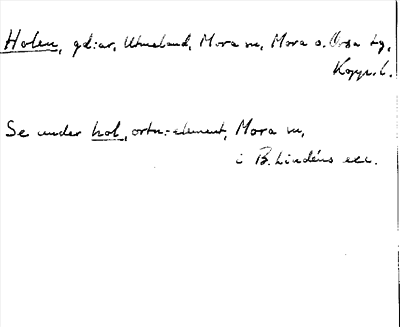 Holen, gd:ar, Utmeland, Mora sn, Mora o. Orsa tg,
Kopp. l.
Se under hol, ortn:-element, Mora sn,
i B. Lindéns exc.